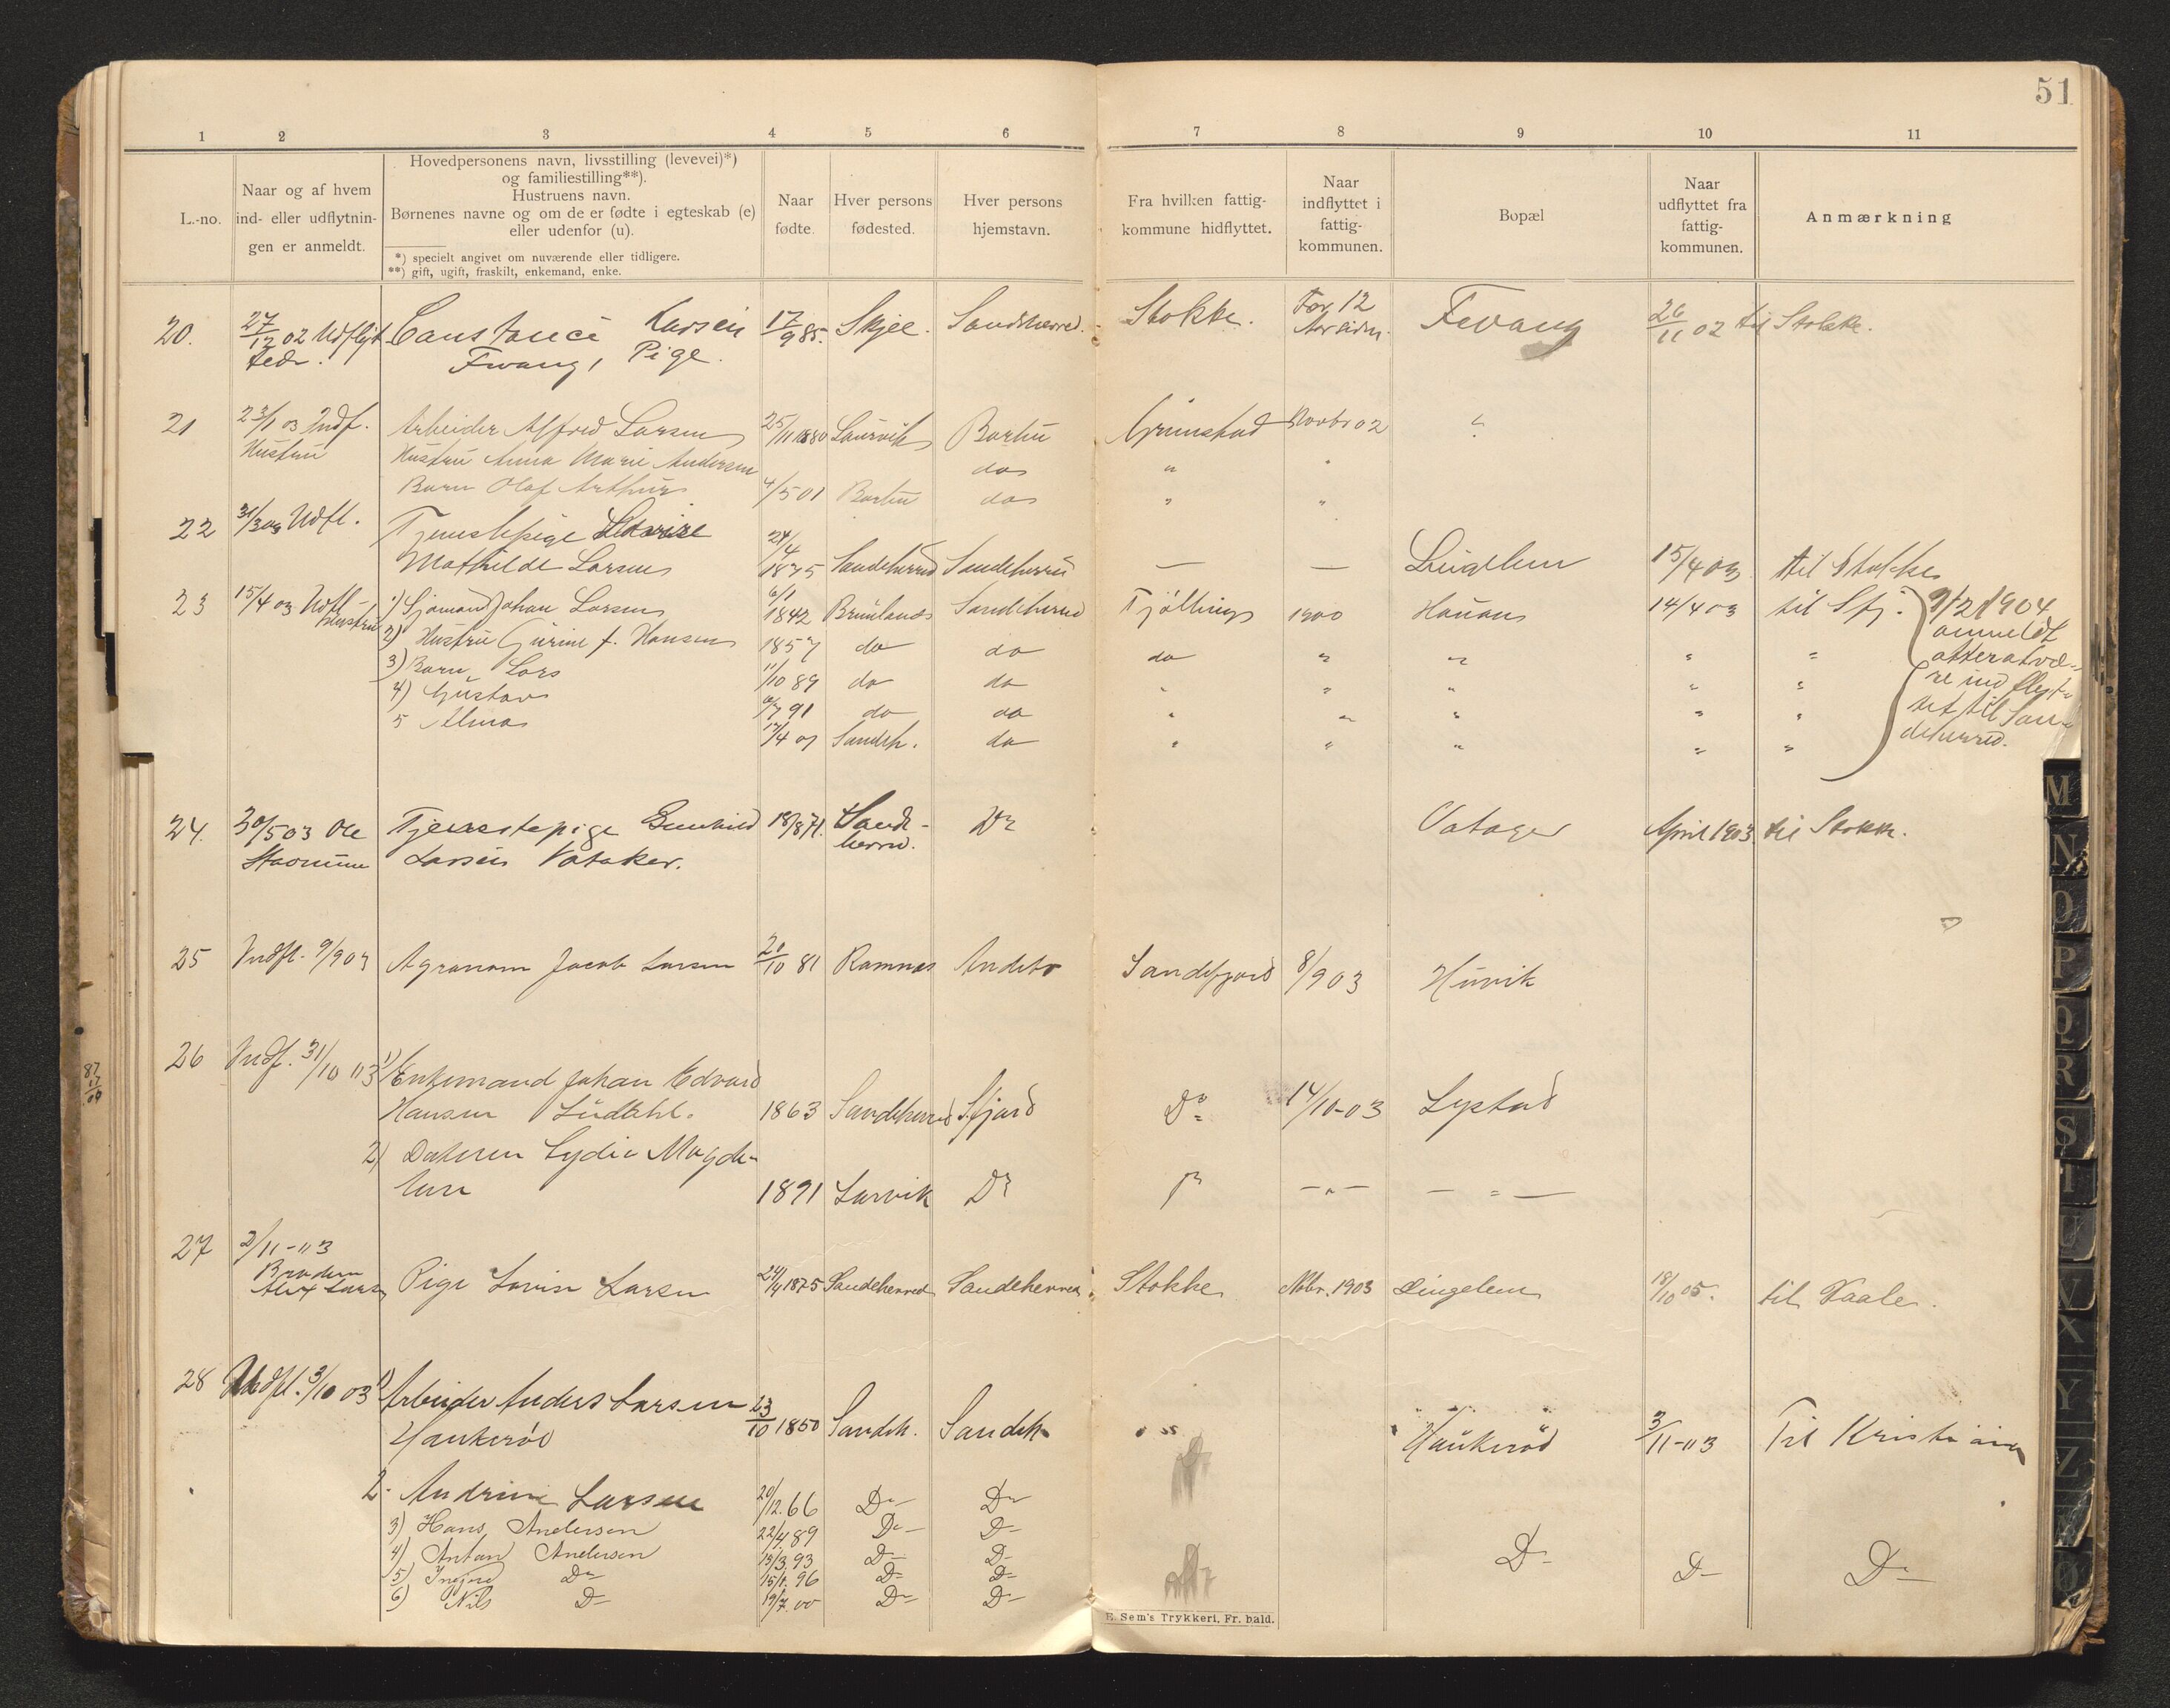 51
1 2 3 4 5 6 7 8 9 10 11
L.-no.
Naar og af hvem
ind- eller udflytnin-
gen er anmeldt.
Hovedpersonens navn, livsstilling (levevei)*)
og familiestilling**).
Hustruens navn.
Børnenes navne og om de er fødte i egteskab (e)
eller udenfor (u).
*) specielt angivet om nuværende eller tidligere.
**) gift, ugift, fraskilt, enkemand, enke.
Naar
fødte.
Hver persons
fødested.
Hver persons
hjemstavn.
Fra hvilken fattig-
kommune hidflyttet.
Naar
indflyttet i
fattig-
kommunen.
Bopæl
Naar
udflyttet fra
fattig-
kommunen.
Anmærkning
20. 27/12 02 Udflyt Constance Larsen 17/9 85. Skjee. Sandeherred. Stokke. For 12 Fevang 26/11 02 til Stokke.
Fevang, Pige. Aar siden.
21 23/1 03 Indf. Arbeider Alfred Larsen 25/11 1880 Laurvik Barbu Grimstad Novbr 02
Hustru Hustru Anna Marie Andersen do " "
Barn Olaf Arthur 4/5 01 Barbu do " "
22 31/3 03 Udfl. Tjenestepige Lovise 24/4
Mathilde Larsen 1875 Sandeherred Sandeherred — — Lingelem 15/4 03 til Stokke
23 15/4 03 Udfl - 1) Sjømand Johan Larsen 6/1 1842 Brunlanes Sandeherred Tjølling 1900 Hauan 14/4 03 til Sfj. 9/2 1904
Hustru 2) Hustru Gurine f. Hansen 1857 do do do " " " " anmeldt
3) Barn Lars 11/10 89 do do " " " " " atter at væ-
4) Gustav 7 91 do do " " " " " re ind flyt-
5 Alma 17/4 01 Sandeh. do " " " " " tet til San-
deherred.
24. 30/5 03 Ole Tjenestepige Gunhild 18/8 71. Sande- Do Vatager April 1903. til Stokke.
Stavnum Larsen Vataker. herred.
25 Indfl. 9/9 03 Agronom Jacob Larsen 21/10 81 Ramnes Andebu Sandefjord 8/9 03 Huvik
26 Indf. 31/10 "03 1) Enkemand Johan Edvard
Hansen Lindahl. 1863 Sandeherred Sfjord Do 14/10-03 Lystad
2) Dateren Lydia Magda-
lene 1891 Larvik Do Do — " — — " —
27 2/11 - "03
Broderen
Alex Larsen Pige Lovise Larsen 24/4 1875 Sandeherred Sandeherred Stokke Nvbr. 1903 Lingelem 18/10 05. til Vaale.
28 Udfl. 3/10 03 1) Arbeider Anders Larsen 23/10 1850 Sandeh. Sandeh. Haukerød 3/11-"03 Til Kristiania
Haukerød
2. Andrine Larsen 20/12. 66 Do Do
3) Hans Andersen 22/4 89 Do Do
4) Anton Andersen 13/3. 93 Do Do Do Do Do
5) Ingvald Do 15/1. 96 Do Do
6) Nils Do 19/7. 00 Do Do
E. Sem's Trykkeri, Fr. hald.
M
N
O
P
Q
R
S
T
U
V
X
Y
Z
Æ
Ø